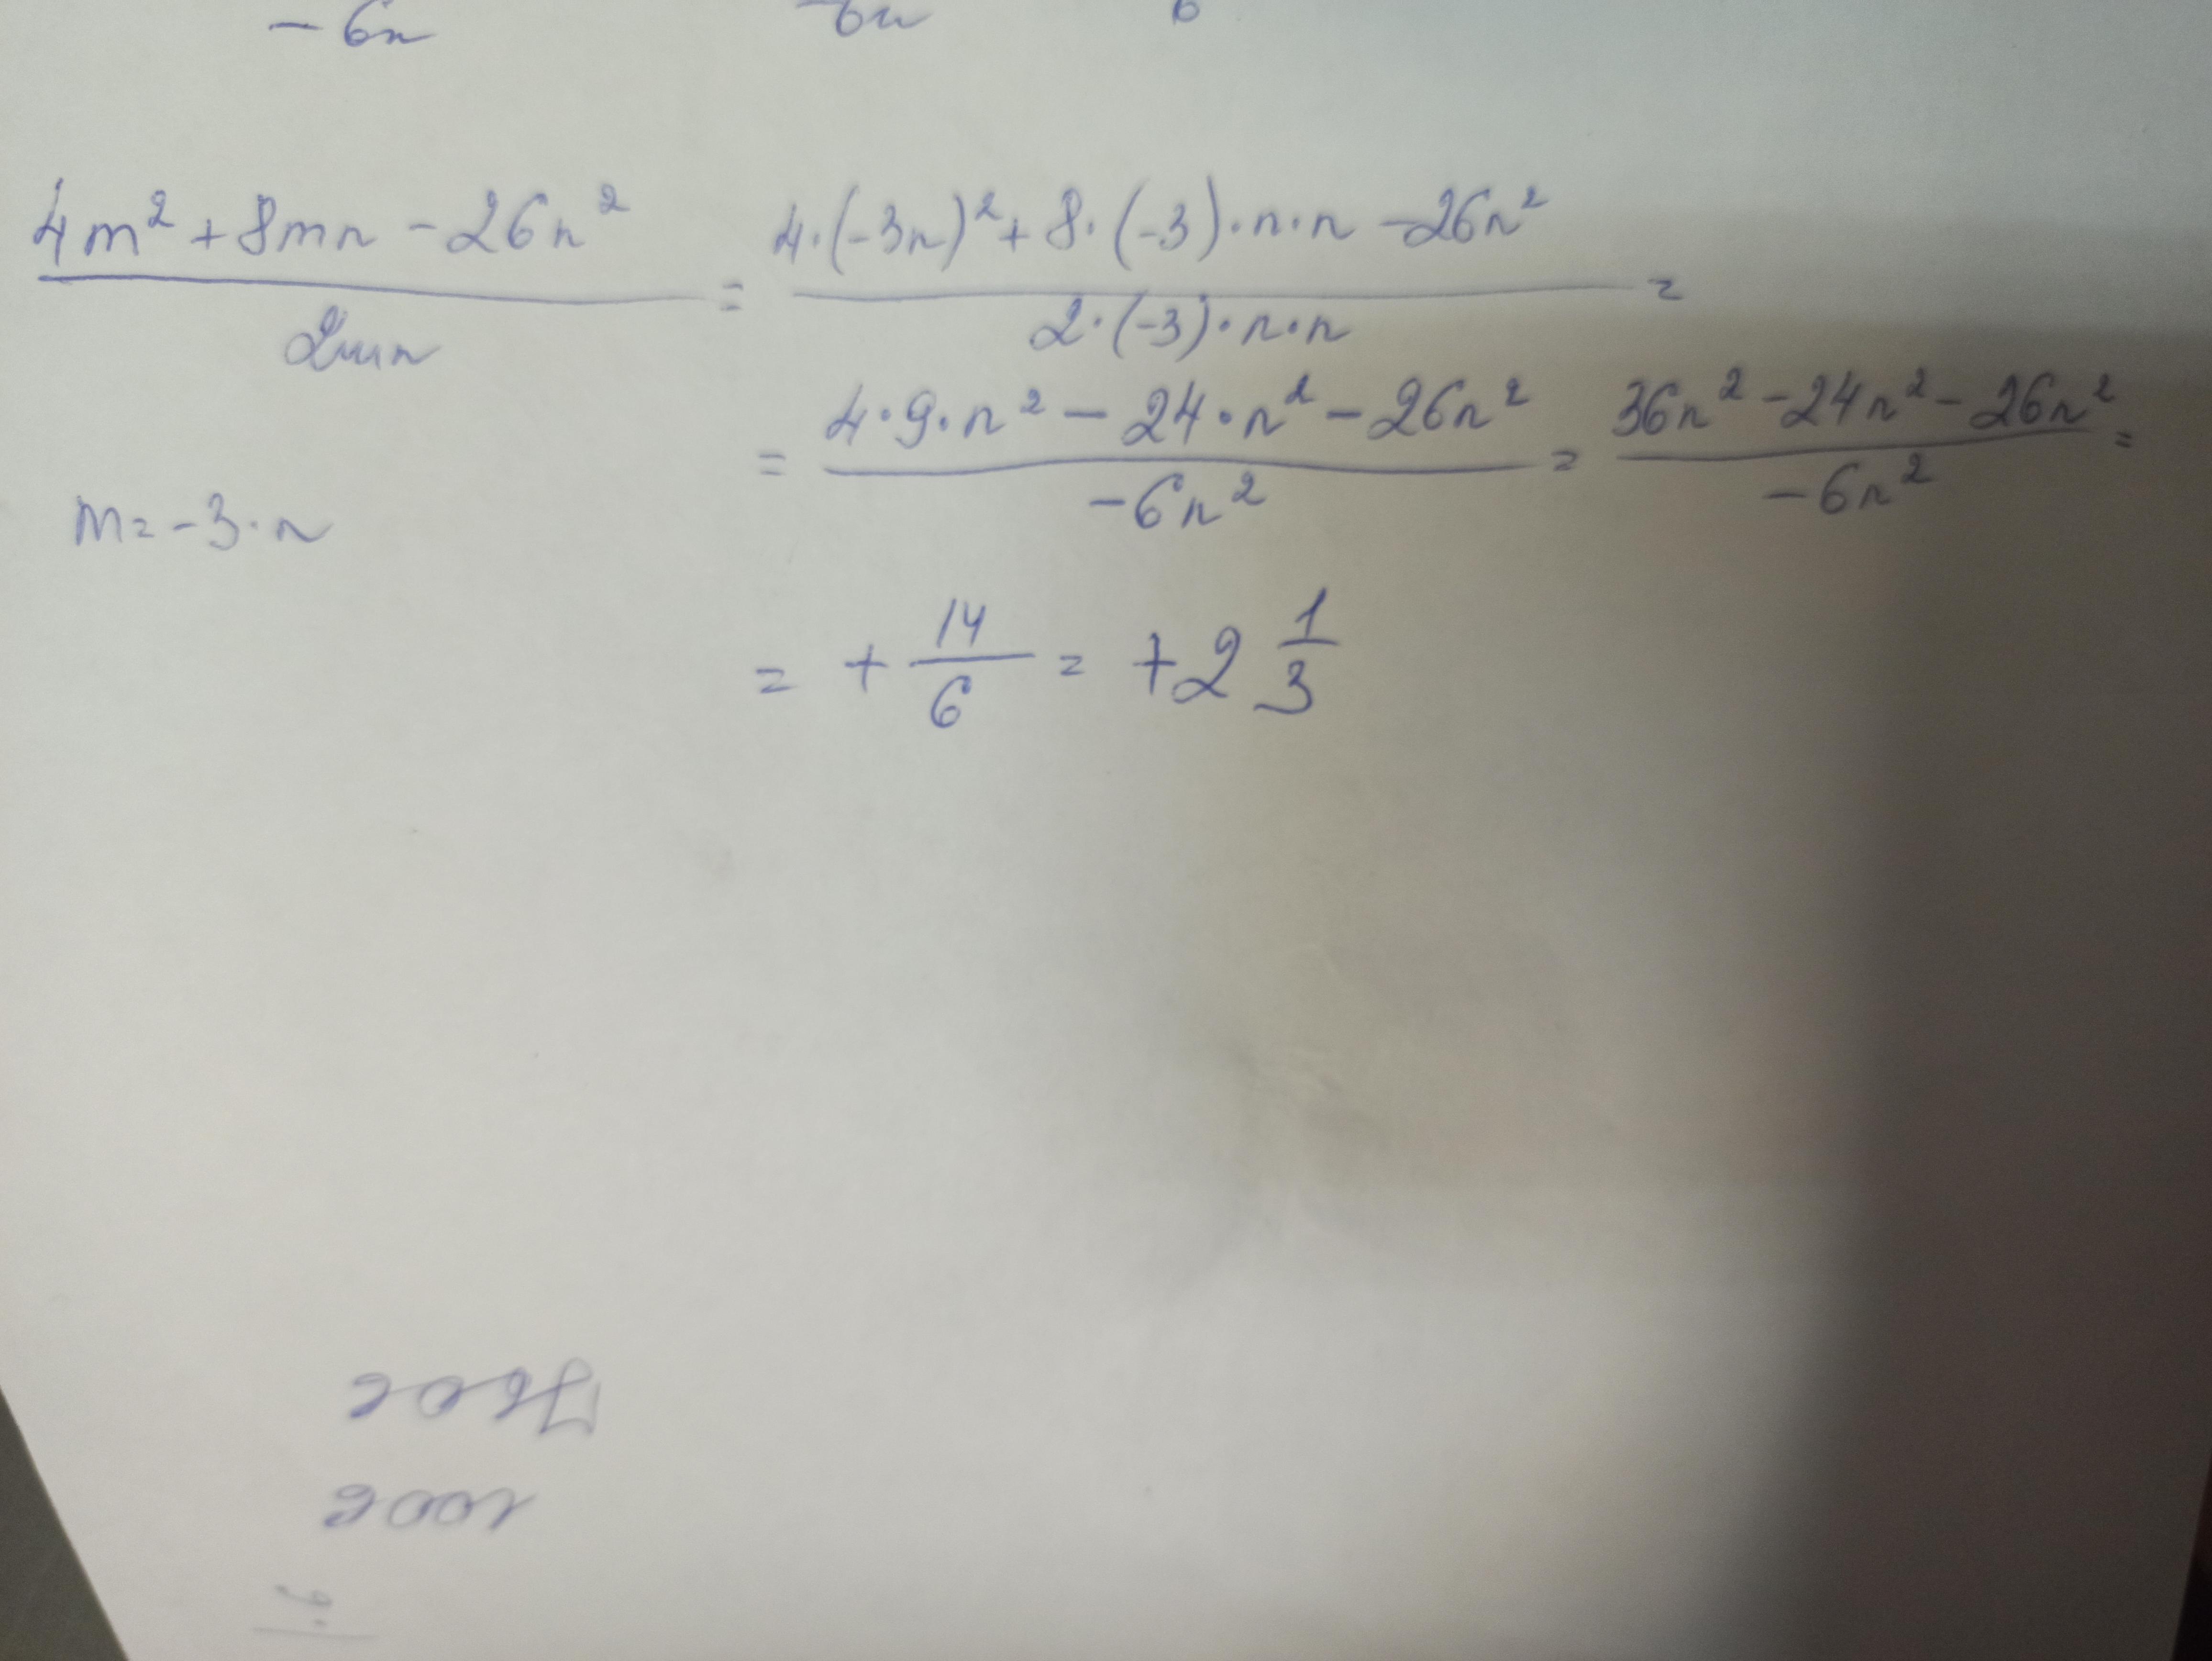 - 6n
4m² + 8mn - 26n² / 2mn = 4·(-3n)² + 8·(-3)·n·n - 26n² / 2·(-3)·n·n =
= 4·9·n² - 24·n² - 26n² / -6n² = 36n² - 24n² - 26n² / -6n² =
m = -3·n
= + 14/6 = +2 1/3